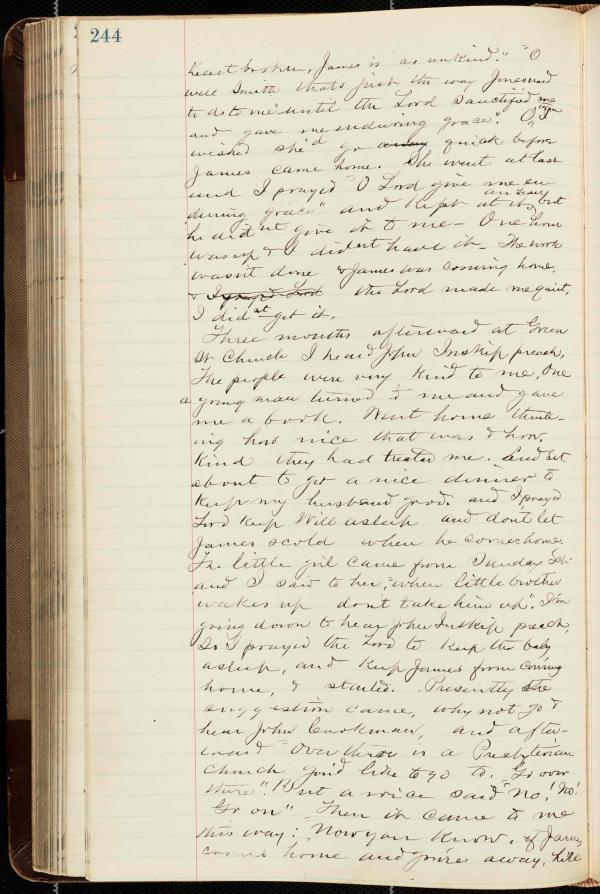 244
heart broken, James is as unkind." "O
well Smith thats just the way Jones used
to do to me until the Lord sanctified me
and gave me enduring grace." O, I
wished she'd go away quick before
James came home. She went at last
and I prayed "O Lord give me en
during grace" and kept at it an hour, but
he didnt give it to me — One hour
was up & I didnt have it — The work
wasn't done & James was coming home.
& I prayed Lord the Lord made me quiet,
I didnt get it.
Three months afterward at Green
St Church I heard John Inskip preach,
The people were very kind to me, One
a young man turned to me and gave
me a book. Went home think-
ing how nice that was & how
kind they had treated me. And set
about to get a nice dinner to
keep my husband good and I prayed
Lord keep Will asleep and dont let
James scold when he comes home.
The little girl came from Sunday Sch-
and I said to her, "when little brother
wakes up don't take him up". I'm
going down to hear John Inskip preach,
So I prayed the Lord to keep the baby
asleep, and keep James from coming
home, & started. Presently the
suggestion came, why not go &
hear John Cookman, and after-
ward "Over there is a Presbyterian
church you'd like to go to. "Go over
there". But a voice said "No! No!
Go on" Then it came to me
this way: "Now you know, if James
comes home and you're away, he'll